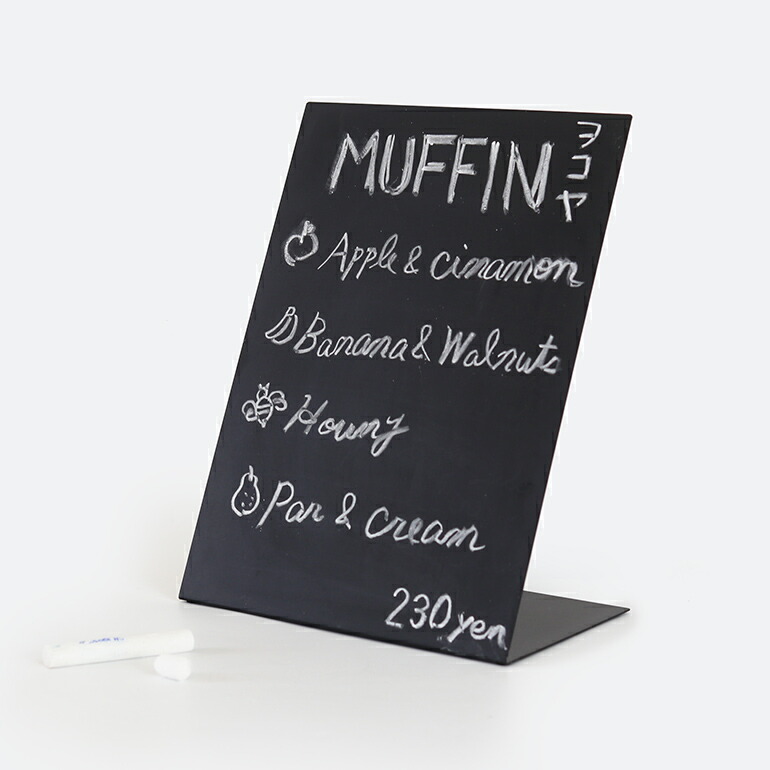 MUFFIN
ヨコヤ
Apple & cinamon
Banana & Walnuts
Houny
Par & cream
230 yen